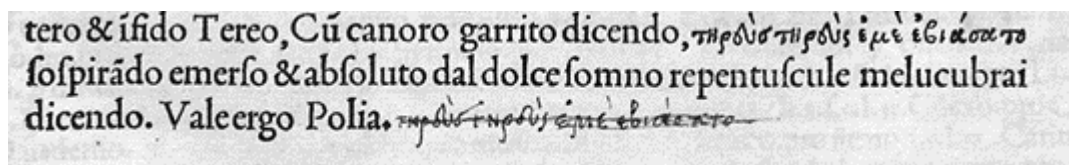 tero & ĩfido Tereo, Cũ canoro garrito dicendo, τηρδὺσ τηρδὺς ἐμὲ ἐβιάσατο
ſoſpirãdo emerſo & abſoluto dal dolce ſomno repentuſcule melucubrai
dicendo. Vale ergo Polia. τηρδὺς τηρδὺς ἐμὲ ἐβιάσατο